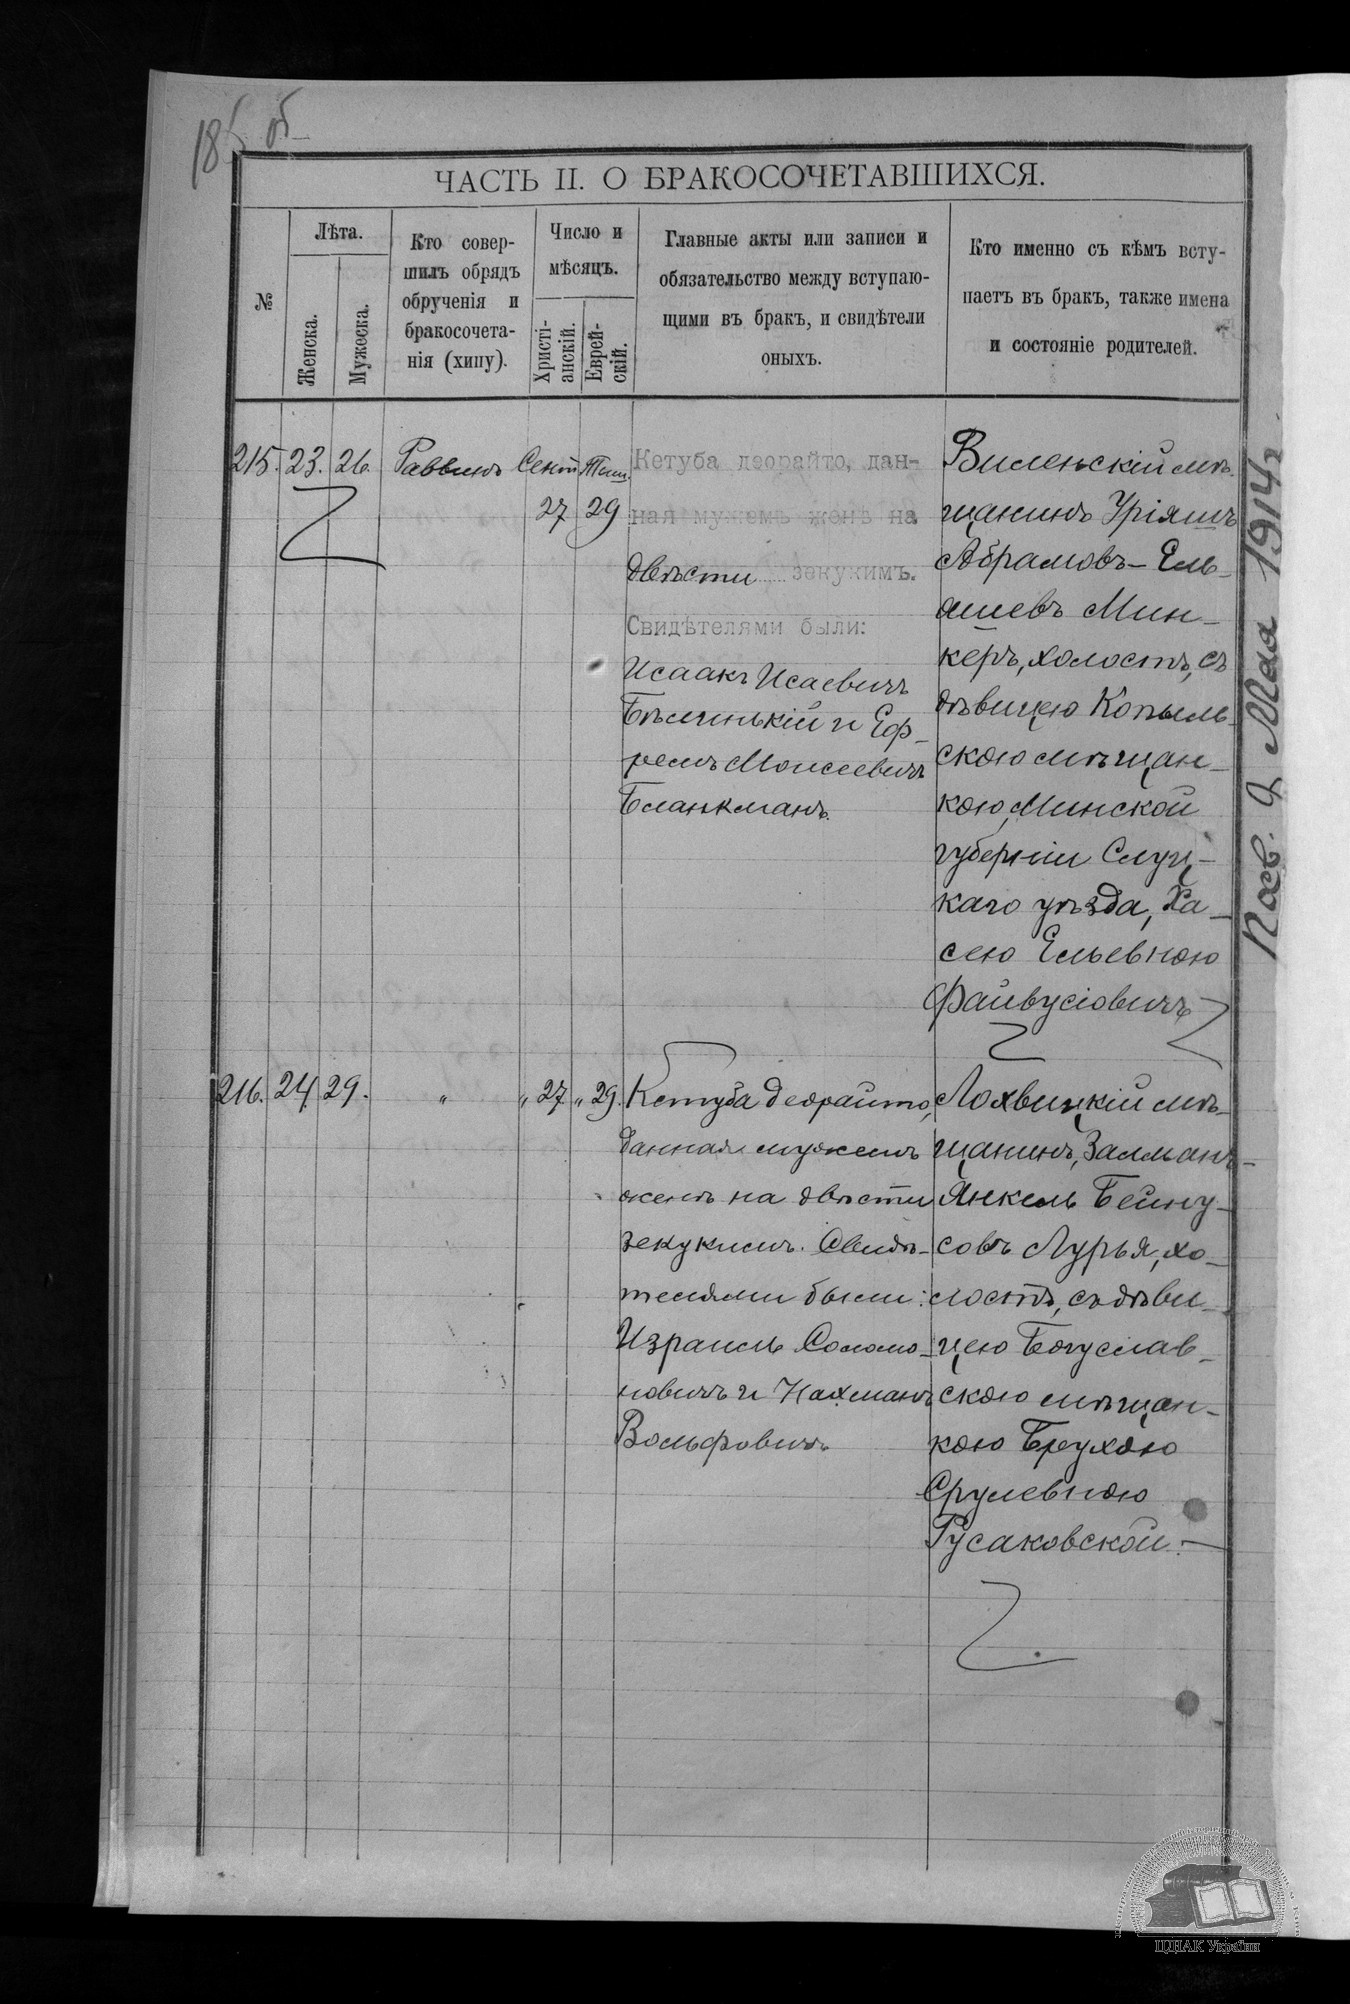 185 об
ЧАСТЬ II. О БРАКОСОЧЕТАВШИХСЯ.
№
Лѣта.
Женска.
Мужеска.
Кто совер-
шилъ обрядъ
обрученія и
бракосочета-
нія (хипу).
Число и
мѣсяцъ.
Христі-
анскій.
Еврей-
скій.
Главные акты или записи и
обязательство между вступаю-
щими въ бракъ, и свидѣтели
оныхъ.
Кто именно съ кѣмъ всту-
паетъ въ бракъ, также имена
и состояніе родителей.
215. 23. 26. Раввинъ Сент Тиш.
27 29
Кетуба деорайто, дан-
ная мужемъ женѣ на
двѣсти зекукимъ.
Свидѣтелями были:
Исаакъ Исаевичъ
Бѣлинькій и Еф-
ремъ Моисеевичъ
Бланкманъ.
Виленскій мѣ-
щанинъ Уріяшъ
Абрамовъ-Ель-
яшевъ Мин-
керъ, холостъ, съ
дѣвицею Копыль-
скою мѣщан-
кою, Минской
губерніи Слуц-
каго уѣзда, Ха-
сею Ельевною
Файвусіовичъ
216. 24. 29. " " 27 " 29.
Кетуба деорайто,
данная мужемъ
женѣ на двѣсти
зекукимъ. Свидѣ-
телями были:
Израиль Соломо-
новичъ и Нахманъ
Вольфовичъ
Лохвицкій мѣ-
щанинъ, Залманъ-
Янкель Бейну-
совъ Лурья, хо-
лостъ, съ дѣви-
цею Богуслав-
скою мѣщан-
кою Брухою
Срулевною
Русаковской.
9 Мая 1914 г.
ЦДІАК України